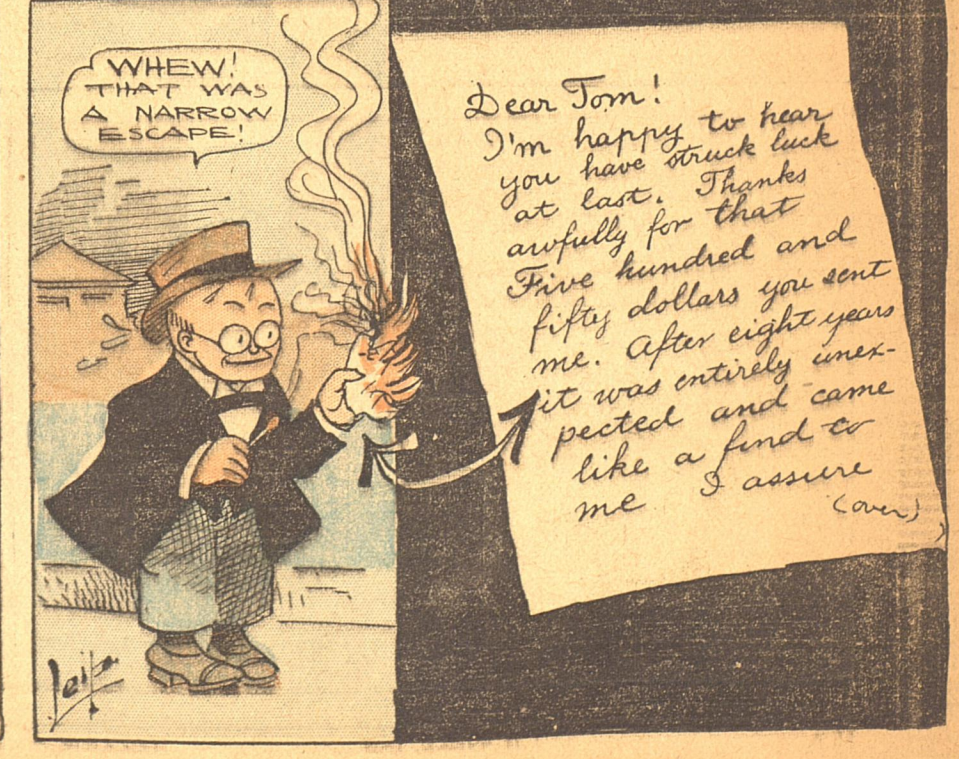 WHEW!
THAT WAS
A NARROW
ESCAPE!
Dear Tom!
I'm happy to hear
you have struck luck
at last. Thanks
awfully for that
Five hundred and
fifty dollars you sent
me. After eight years
it was entirely unex-
pected and came
like a find to
me I assure
(over)